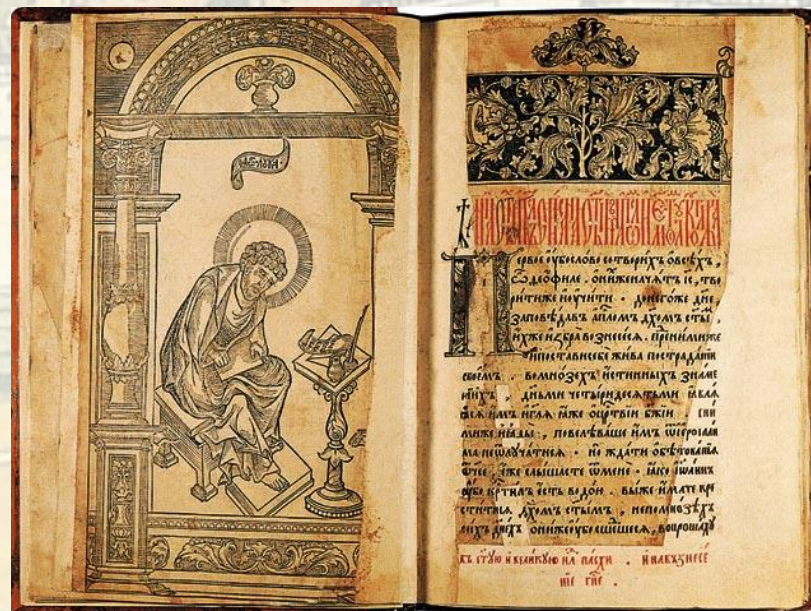 Первое оубо слово сотворихъ ѡ всѣхъ,
ѽ деѻфиле. ѡ нихже начѧтъ і҃с, тво
рити же и оучити. до негоже дн҃е
заповѣдавъ ап҃лѡмъ дх҃омъ ст҃ы,
ихже избра вознесесѧ. пре ними же
и постави себе жива по страдании
своемъ. во мнозехъ истинныхъ знаме
нїихъ, дньми четыридесѧтьми ꙗвлѧ
ѧсѧ имъ и глѧ ꙗже ѡ цр҃твїи бж҃їи. с ни
ми же и ꙗды, повелѣваше имъ ѿ їеросали
ма не ѿлꙋчатисѧ. но ждати обѣтованїѧ
ѿчее, еже слышасте ѿ мене. ꙗко їѡаннъ
оубо кр҃тилъ есть водою. вы же имате кре
ститисѧ дх҃омъ ст҃ымъ, не по мнозѣхъ
сихъ днехъ ѻни же оубо сшешесѧ, вопрошахꙋ
въ ст҃ꙋю и великꙋю нл҃ѧ пасхи. и на възнесе
нїе гн҃е.